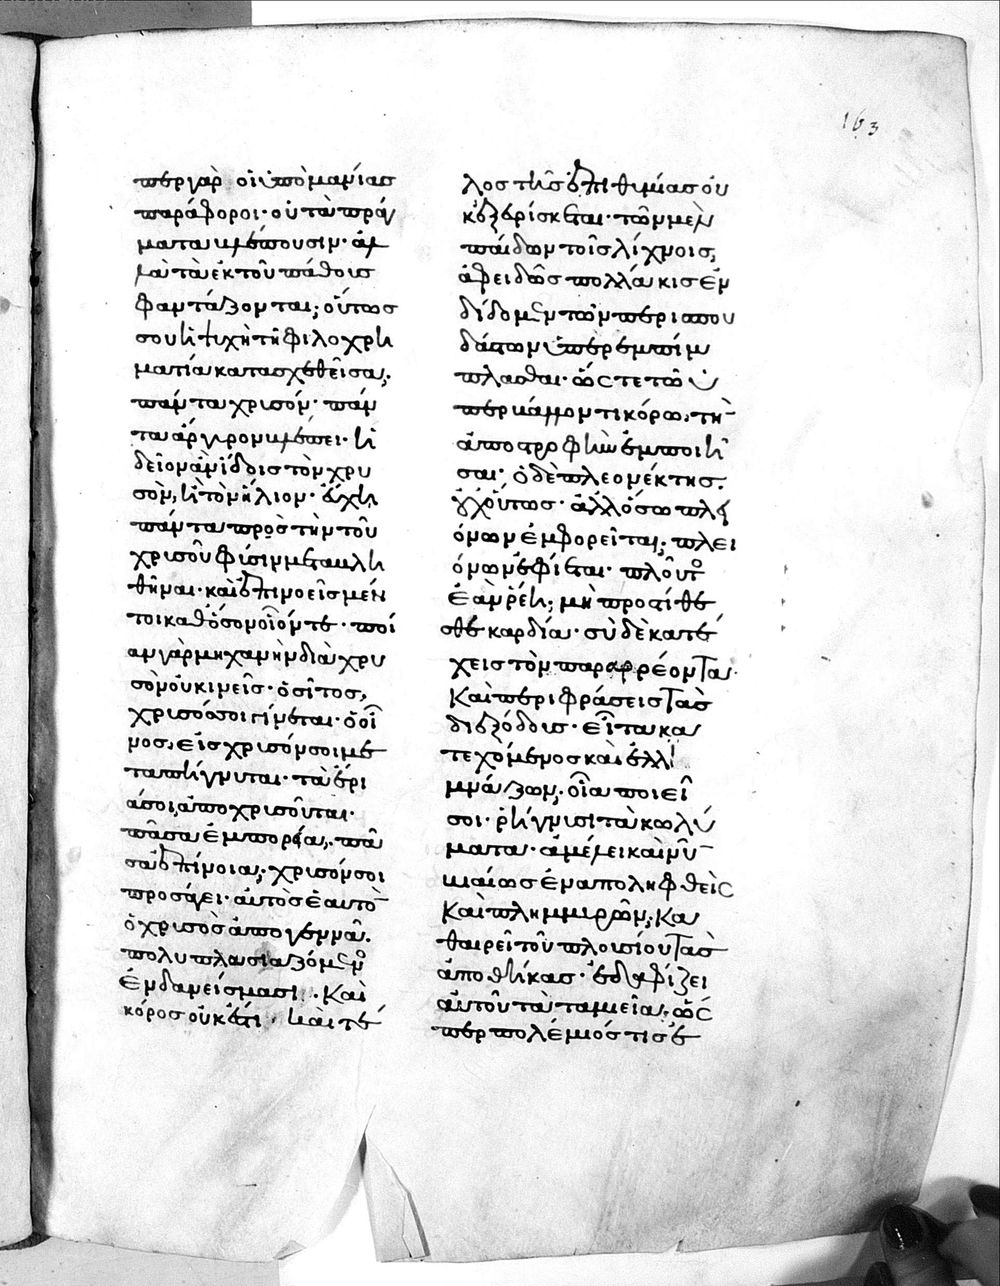 163
περ γὰρ οἱ ὑπὸ μανίασ
παράφοροι· οὐ τὰ πράγ
ματα βλέπουσιν· ἀλ
λὰ τὰ ἐκ τοῦ πάθουσ
φαντάζονται; οὕτωσ
σου ἡ ψυχὴ τῆ φιλοχρη
ματία κατασχεθεῖσα;
πάντα χρυσόν· πάν
τα ἄργυρον βλέπει· ἥ
δειον ἂν ἴδοισ τὸν χρυ
σὸν, ἢ τὸν ἥλιον· εὔχη
πάντα πρὸσ τὴν τοῦ
χρυσοῦ φύσιν μεταβλη
θῆναι· καὶ ἐπινοεῖσ μέν
τοι καθόσον οἷόν τε· ποί
αν γὰρ μηχανὴν διὰ χρυ
σὸν οὐ κινεῖσ· ὁ σῖτοσ,
χρυσόσ σοι γίνεται· ὁ οἶ
νοσ, εἰσ χρυσόν σοι με
ταπήγνυται· τὰ ἔρι
ά σοι, ἀποχρυσοῦται·
πᾶσα ἐμπορία, πᾶ
σα ἐπίνοια; χρυσόν σοι
προσάγει· αὐτὸσ ἑαυτὸ
ὁ χρυσὸσ ἀπογεννᾶ.
πολυπλασιαζόμενοσ
ἐν δανείσμασι· Καὶ
κόροσ οὐκ ἔστι· καὶ τέ
λοσ τῆσ ἐπιθυμίασ οὐ
κ ἐξευρίσκεται· τῶν μὲν
παίδων τοῖσ λίχνοισ,
ἀφειδῶσ πολλάκισ ἐν
δίδομεν τῶν περισπου
δάστων ὑπερεμπίμ
πλασθαι· ὥστε τῶ ὑ
περβάλλοντι κόρω, τὴν
ἀποστροφὴν ἐμποιῆ
σαι· ὁ δὲ πλεονέκτησ.
οὐχ οὕτωσ· ἀλλ' ὅσω πλει
όνων ἐμφορεῖται; πλει
όνων ἐφίεται· πλοῦτοσ
ἐὰν ῥέη; μὴ προστίθε
σθε καρδίαν· σὺ δὲ κατέ
χεισ τὸν παραρρέοντα·
Καὶ περιφράσεισ τὰσ
διεξόδουσ· εἶτα κα
τεχόμενοσ καὶ ἐλλι
μνάζων, οἷα ποιεῖ
σοι· ῥήγνυσι τὰ κωλύ
ματα· ἀμέλει καὶ νῦν
βιαίωσ ἐναποληφθεὶσ
Καὶ πλημμυρῶν; Κα
θαιρεῖ τοῦ πλουσίου τὰσ
ἀποθήκασ· ἐδαφίζει
αὐτοῦ τὰ ταμιεῖα· ὥσ
περ πολέμιόσ τισ ἐ